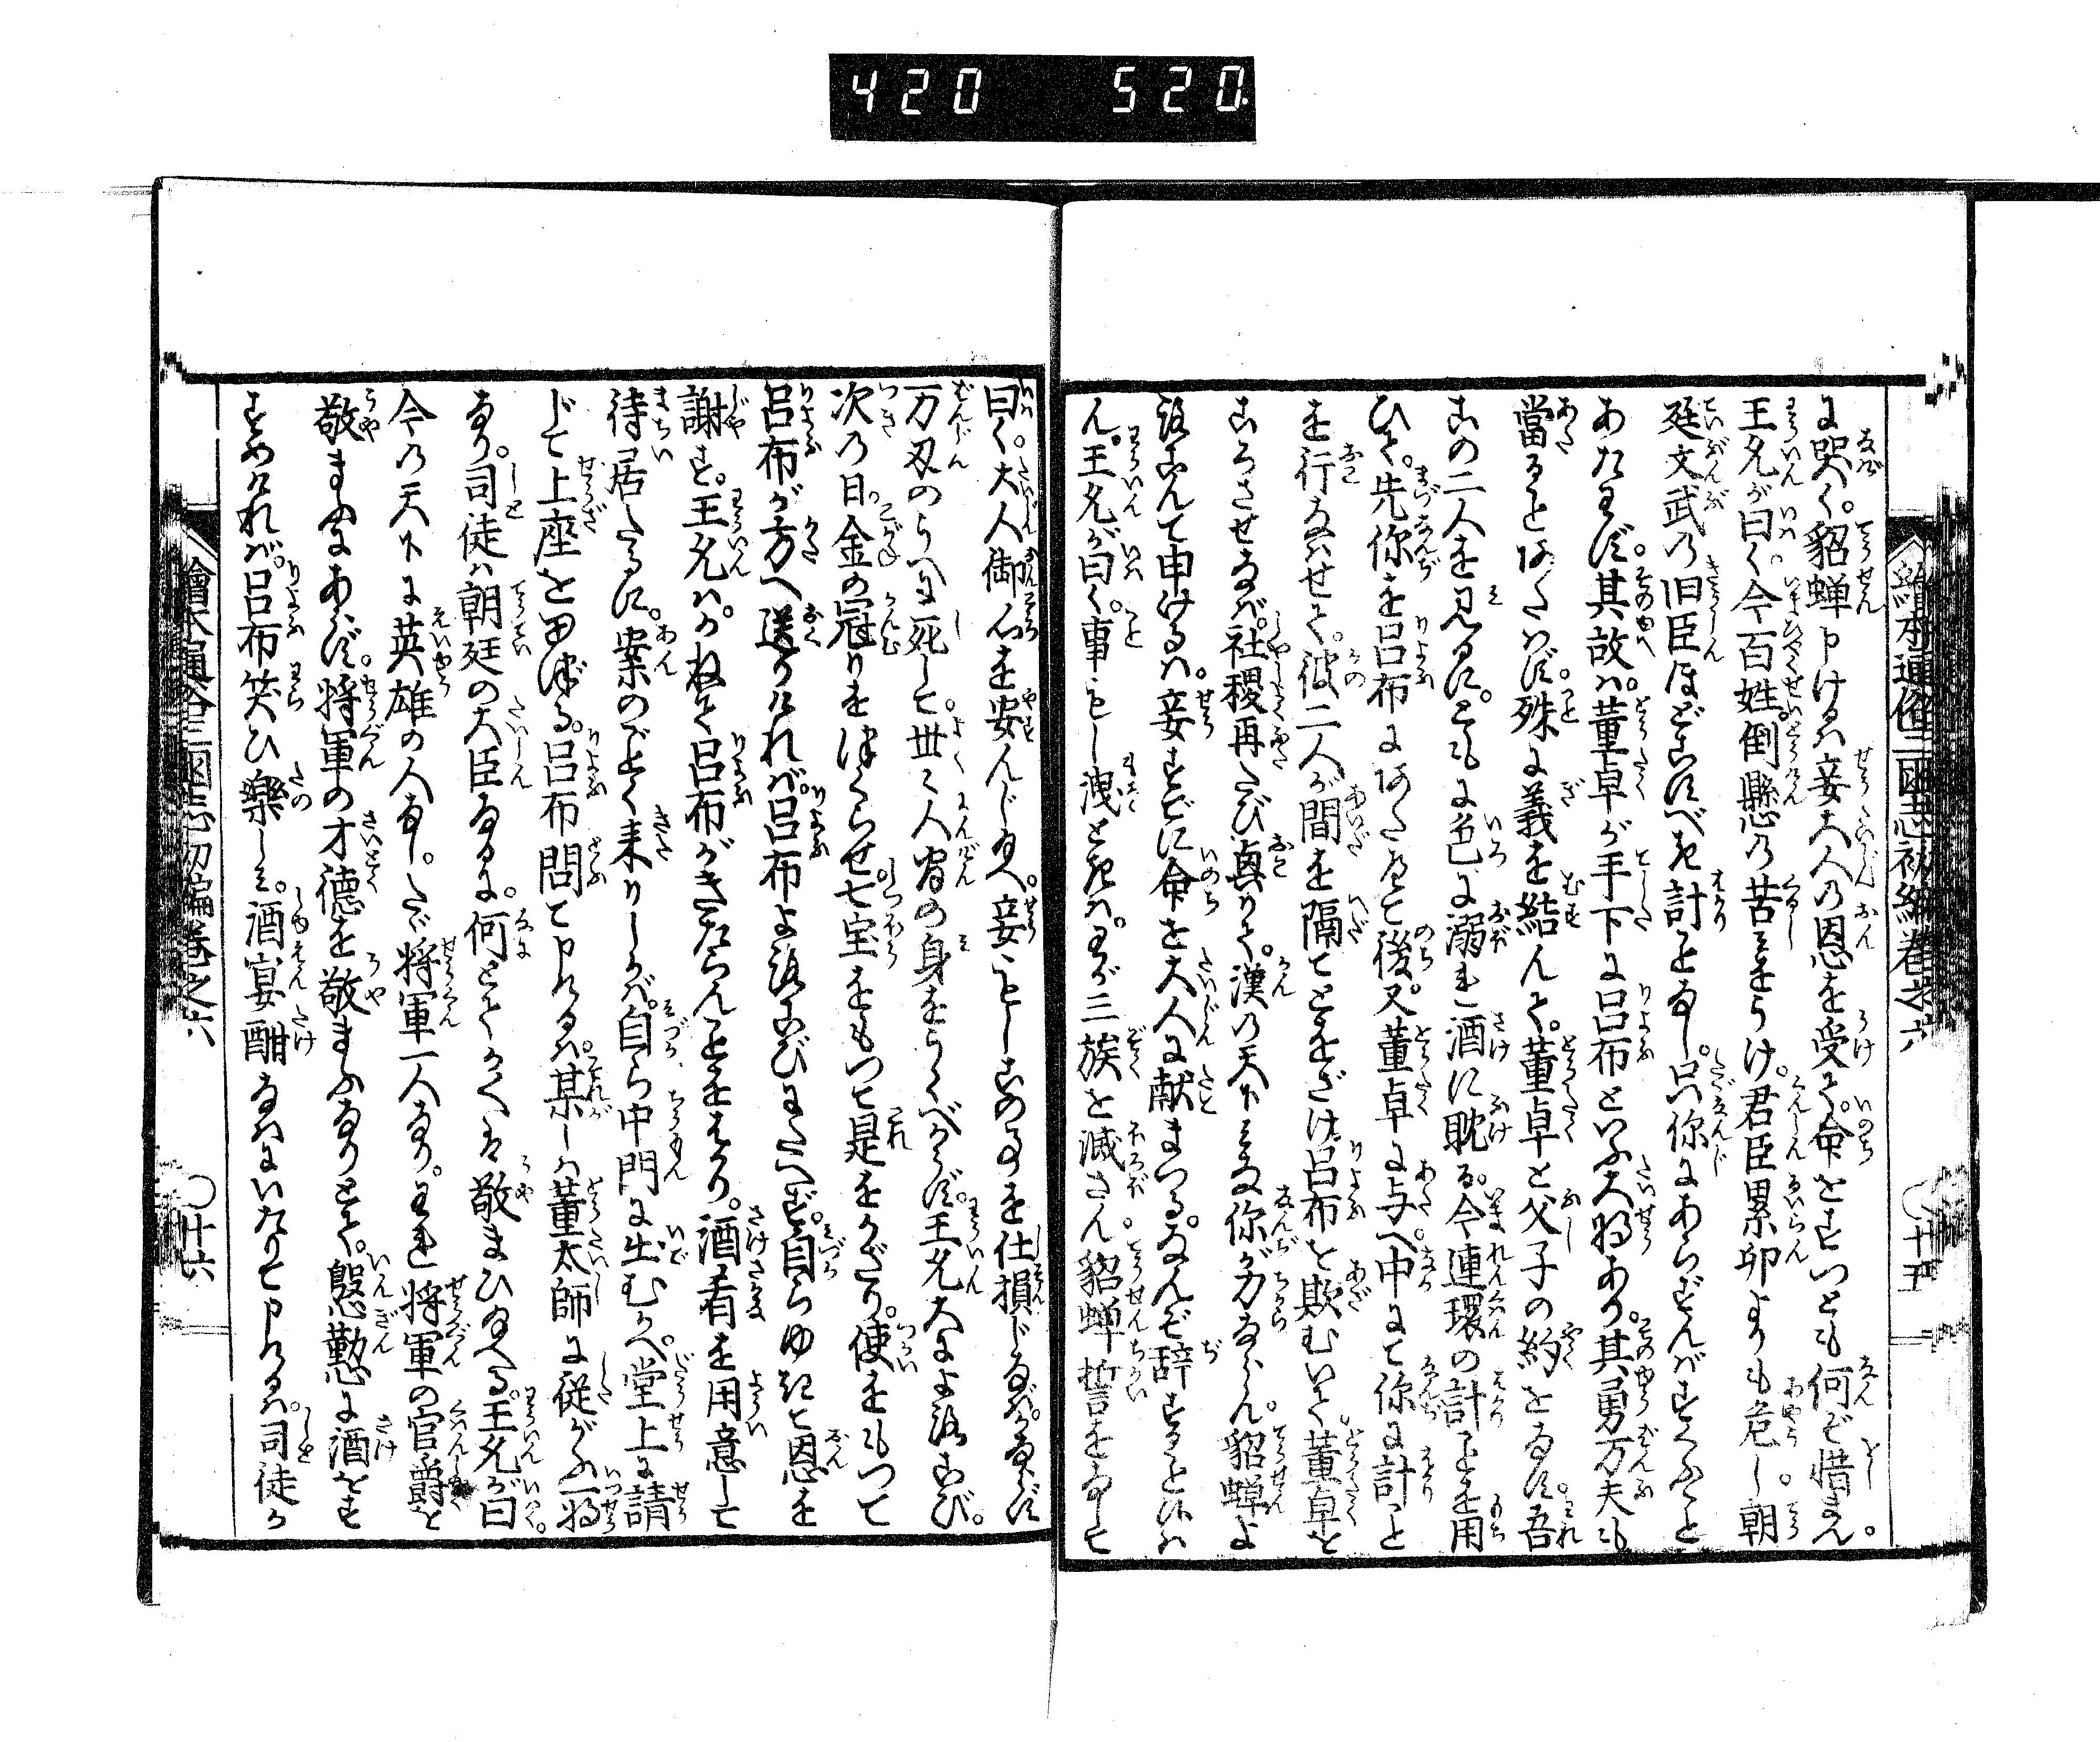 420 520
繪本通俗三國志初編卷之六 〇十五
に哭く。貂蝉申けるハ妾大人の恩を受て。命をすつとも何ぞ惜まん。
王允が曰く。今百姓。倒懸の苦みをうけ。君臣累卵よりも危し。朝
廷文武の旧臣ほどこすべき計をなし。只你にあらずんばすくふこと
あたハず。其故ハ。董卓が手下に呂布といふ大将あり。其勇万夫も
當ることあたハず。殊に義を結んで。董卓と父子の約をなす。吾
この二人を見るに。ともに色に溺れ酒に耽る。今連環の計ことを用
ひて。先你を呂布にあたへて後。又董卓に与へ。中にて你に計こと
を行なハせて。彼二人が間を隔てとをざけ。呂布を欺むいて。董卓を
ころさせなバ。社稷再たび興りて。漢の天下みな你が力ならん。貂蝉よ
ろこんで申けるハ。妾すでに命を大人に献まつる。なんぞ辞することハ
ん。王允が曰く。事もし洩ときハ。わが三族を滅さん。貂蝉誓をなして
曰く。大人御心を安んじ玉へ。妾もしこの事を仕損じなバ。かならず
万刃のうへに死して。世々人間の身をうくべからず。王允大によろこび。
次の日。金の冠りをつくらせ。七宝をもつて是をかざり。使をもつて
呂布が方へ送りけれバ。呂布よろこびにたへず。自らゆきて恩を
謝す。王允ハ。かねて呂布がきたらんことをはかり。酒肴を用意して
待居たるに。案のごとく来りしかバ。自ら中門に出むかへ。堂上に請
じて上座をゆづる。呂布問て申けるハ。某しハ董太師に従がふ一将
なり。司徒ハ朝廷の大臣なるに。何とてかくハ敬まひ玉へる。王允が曰
今の天下に英雄の人なし。たゞ将軍一人なり。われ将軍の官爵を
敬まふにあらず。将軍の才徳を敬まふなりとて。慇懃に酒をす
すめけれバ。呂布笑ひ樂しみ。酒宴酣なハにいたりて申けるハ。司徒か
繪本通俗三國志初編卷之六 〇十六